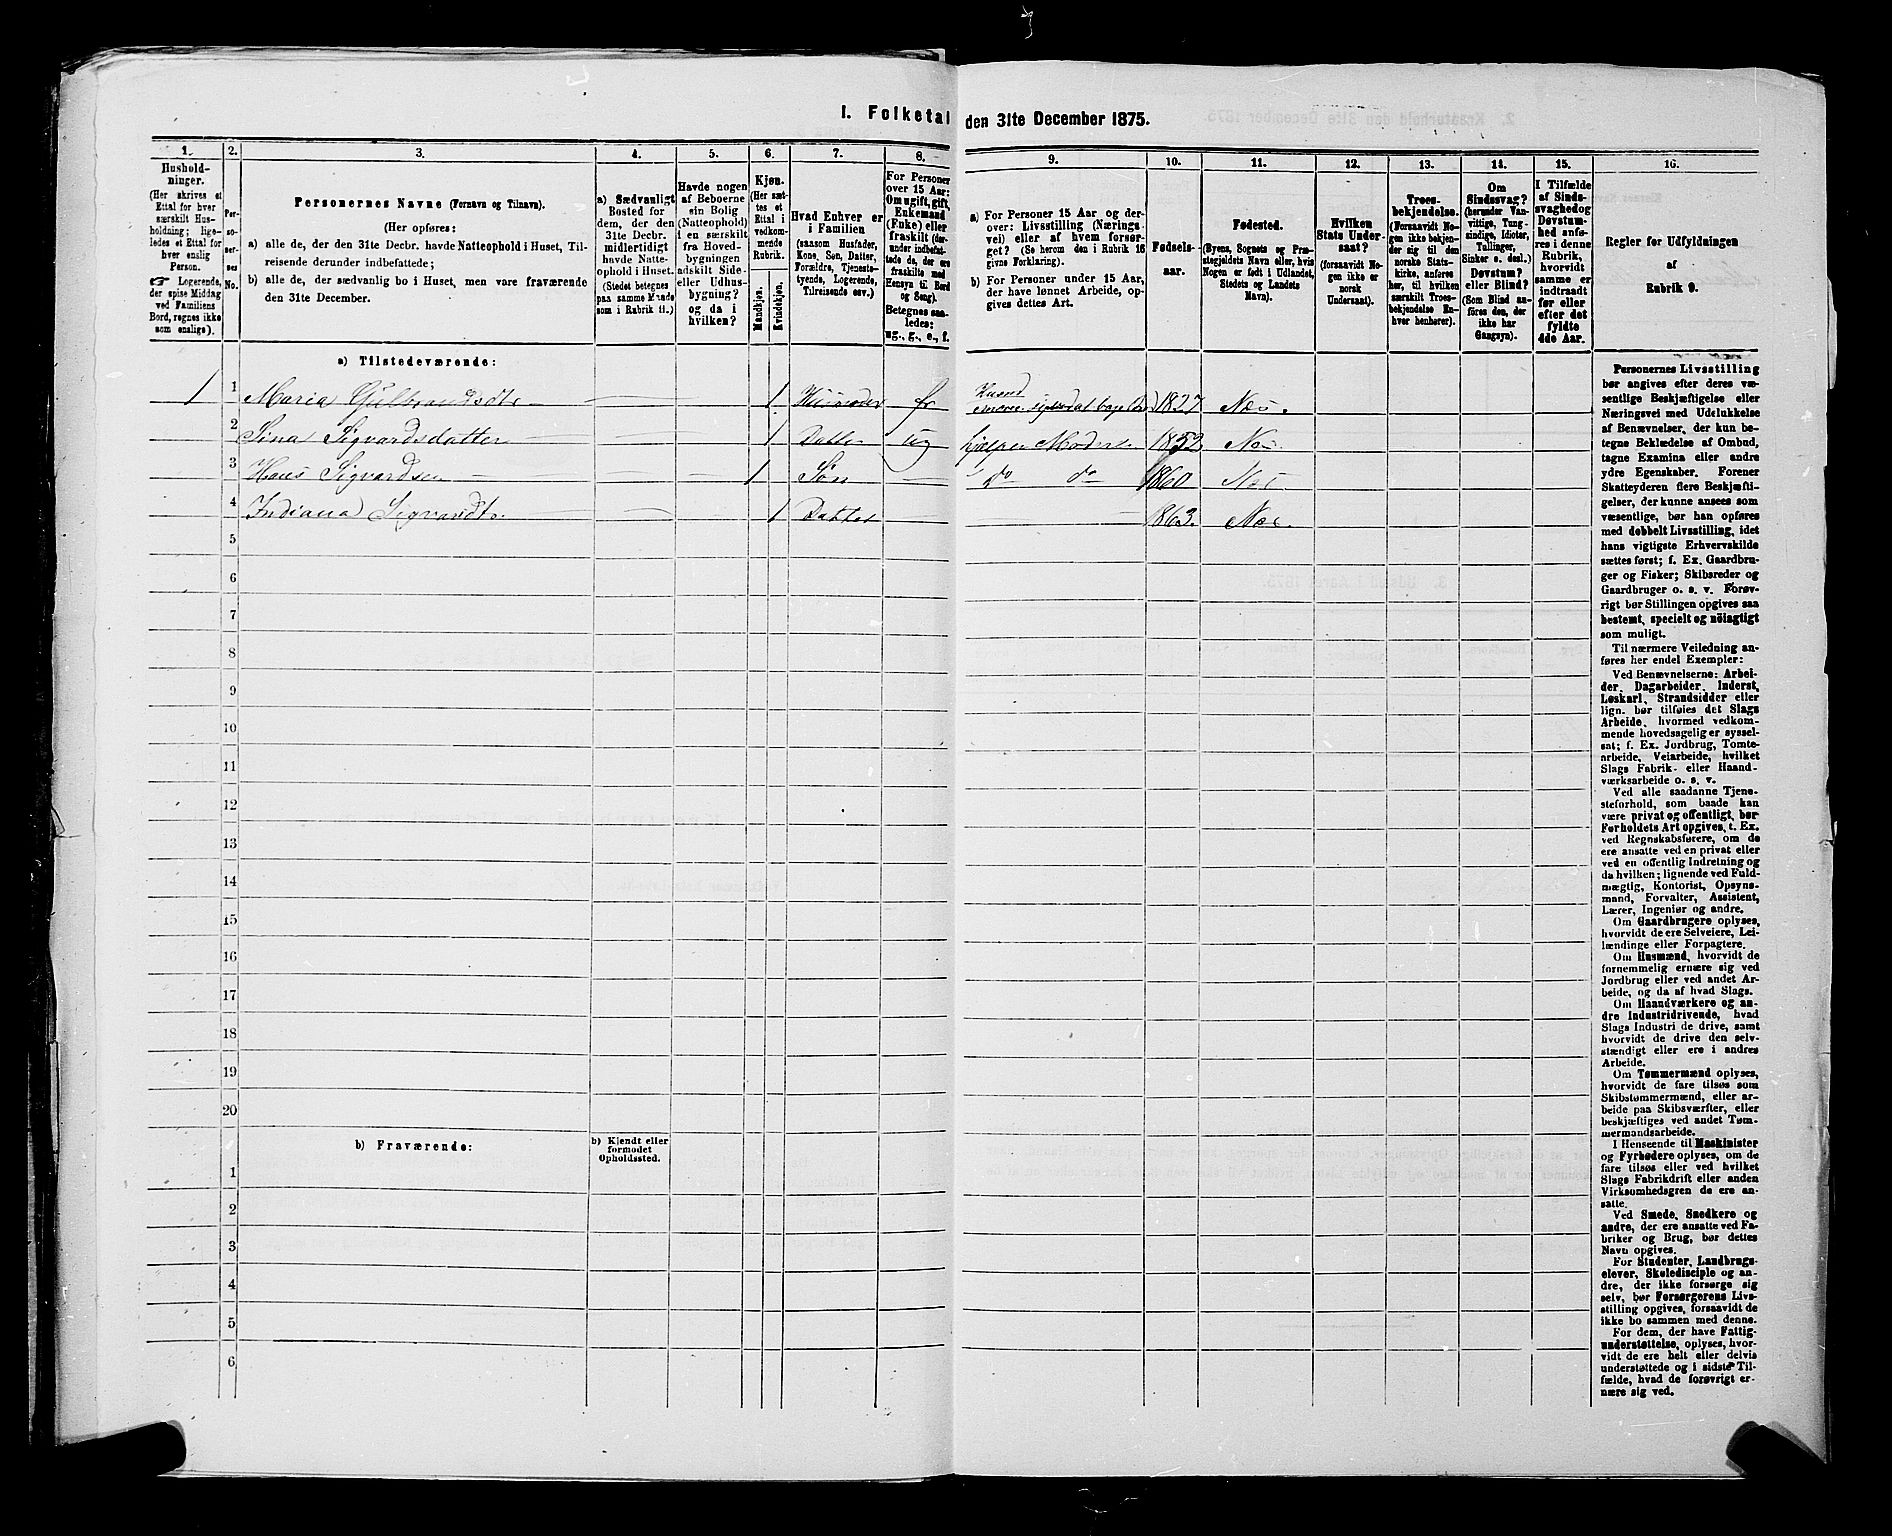 I. Folketal den 31te December 1875.
1. 2. 3. 4. 5. 6. 7. 8. 9. 10. 11. 12. 13. 14. 15. 16.
Hushold-
ninger.
(Her skrives et
Ettal for hver
særskilt Hus-
holdning; lige-
ledes et Ettal for
hver enslig
Person.
Logerende,
der spise Middag
ved Familiens
Bord, regnes ikke
som enslige).
Per-
so-
ner-
nes
No.
Personernes Navne (Fornavn og Tilnavn).
(Her opføres:
a) alle de, der den 31te Decbr. havde Natteophold i Huset, Til-
reisende derunder indbefattede;
b) alle de, der sædvanlig bo i Huset, men vare fraværende
den 31te December.
a) Sædvanligt
Bosted for
dem, der den
31te Decbr.
midlertidigt
havde Natte-
ophold i Huset.
(Stedet betegnes
paa samme Maade
som i Rubrik 11.)
Havde nogen
af Beboerne
sin Bolig
(Natteophold)
i en særskilt
fra Hoved-
bygningen
adskilt Side-
eller Udhus-
bygning?
og da i
hvilken?
Kjøn.
(Her sæt-
tes et
Ettal i
vedkom-
mende
Rubrik.
Mandkjøn.
Kvindekjøn.
Hvad Enhver er
i Familien
(saasom Husfader,
Kone, Søn, Datter,
Forældre, Tjeneste-
tyende, Logerende,
Tilreisende osv.)
For Personer
over 15 Aar:
Om ugift, gift,
Enkemand
(Enke) eller
fraskilt (der-
under indbefat-
tede de, der ere
fraskilte med
Hensyn til Bord
og Seng).
Betegnes saa-
ledes:
ug., g., e., f.
a) For Personer 15 Aar og der-
over: Livsstilling (Nærings-
vei) eller af hvem forsør-
get? (Se herom den i Rubrik 16
givne Forklaring).
b) For Personer under 15 Aar,
der have lønnet Arbeide, op-
gives dettes Art.
Fødsels-
aar.
Fødested.
(Byens, Sognets og Præ-
stegjeldets Navn eller, hvis
Nogen er født i Udlandet,
Stedets og Landets
Navn).
Hvilken
Stats Under-
saat?
(forsaavidt No-
gen ikke er
norsk
Undersaat).
Troes-
bekjendelse.
(Forsaavidt No-
gen ikke bekjen-
der sig til den
norske Stats-
kirke, anføres
her, til hvilken
særskilt Troes-
bekjendelse En-
hver henhører).
Om
Sindssvag?
(herunder Van-
vittige, Tung-
sindige, Idioter,
Tullinger,
Sinker o. desl.)
Døvstum?
eller Blind?
(Som Blind an-
føres den, der
ikke har
Gangsyn).
I Tilfælde
af Sinds-
svaghed og
Døvstum-
hed anfø-
res i denne
Rubrik,
hvorvidt
samme er
indtraadt
før eller
efter det
fyldte
4de Aar.
Regler for Udfyldningen
af
Rubrik 9.
a) Tilstedeværende:
1 1 Maria Gulbrandsdtr 1 Husmoder 1827 Næs.
2 Sina Sigvardsdatter 1 Datter ug hjælper Moderen 1852 Næs
3 Hans Sigvardsen 1 Søn do do 1860 Næs
4 Indiana Sigvardtr 1 Datter 1863. Næs.
5
6
7
8
9
10
11
12
13
14
15
16
17
18
19
20
b) Fraværende:
b) Kjendt eller
formodet
Opholdssted.
1
2
3
4
5
6
Personernes Livsstilling
bør angives efter deres væ-
sentlige Beskjæftigelse eller
Næringsvei med Udelukkelse
af Benævnelser, der kun be-
tegne Beklædelse af Ombud,
tagne Examina eller andre
ydre Egenskaber. Forener
Skatteyderen flere Beskjæfti-
gelser, der kunne ansees som
væsentlige, bør han opføres
med dobbelt Livsstilling, idet
hans vigtigste Erhvervskilde
sættes først; f. Ex. Gaardbru-
ger og Fisker; Skibsreder og
Gaardbruger o. s. v. Forøv-
rigt bør Stillingen opgives saa
bestemt, specielt og nøiagtigt
som muligt.
Til nærmere Veiledning an-
føres her endel Exempler:
Ved Benævnelserne: Arbei-
der, Dagarbeider, Inderst,
Løskarl, Strandsidder eller
lign. bør tilføies det Slags
Arbeide, hvormed vedkom-
mende hovedsagelig er syssel-
sat; f. Ex. Jordbrug, Tomte-
arbeide, Veiarbeide, hvilket
Slags Fabrik- eller Haand-
værksarbeide o. s. v.
Ved alle saadanne Tjene-
steforhold, som baade kan
være privat og offentligt, bør
Forholdets Art opgives, t. Ex.
ved Regnskabsførere, om de
ere ansatte ved en privat eller
ved en offentlig Indretning og
da hvilken; lignende ved Fuld-
mægtig, Kontorist, Opsyns-
mand, Forvalter, Assistent,
Lærer, Ingeniør og andre.
Om Gaardbrugere oplyses,
hvorvidt de ere Selveiere, Lei-
lændinge eller Forpagtere.
Om Husmænd, hvorvidt de
fornemmelig ernære sig ved
Jordbrug eller ved andet Ar-
beide, og da af hvad Slags.
Om Haandværkere og an-
dre Industridrivende, hvad
Slags Industri de drive, samt
hvorvidt de drive den selv-
stændigt eller ere i andres
Arbeide.
Om Tømmermænd oplyses,
hvorvidt de fare tilsøs som
Skibstømmermænd, eller ar-
beide paa Skibsværfter, eller
beskjæftiges ved andet Tøm-
mermandsarbeide.
I Henseende til Maskinister
og Fyrbødere oplyses, om de
fare tilsøs eller ved hvilket
Slags Fabrikdrift eller anden
Virksomhedsgren de ere an-
satte.
Ved Smede, Snedkere og
andre, der ere ansatte ved Fa-
briker og Brug, bør dettes
Navn opgives.
For Studenter, Landbrugs-
elever, Skoledisciple og an-
dre, der ikke forsørge sig
selv, bør Forsørgerens Livs-
stilling opgives, forsaavidt de
ikke bo sammen med denne.
For dem, der have Fattig-
understøttelse, oplyses, hvor-
vidt de ere helt eller delvis
understøttede og i sidste Til-
fælde, hvad de forøvrigt er-
nære sig ved.